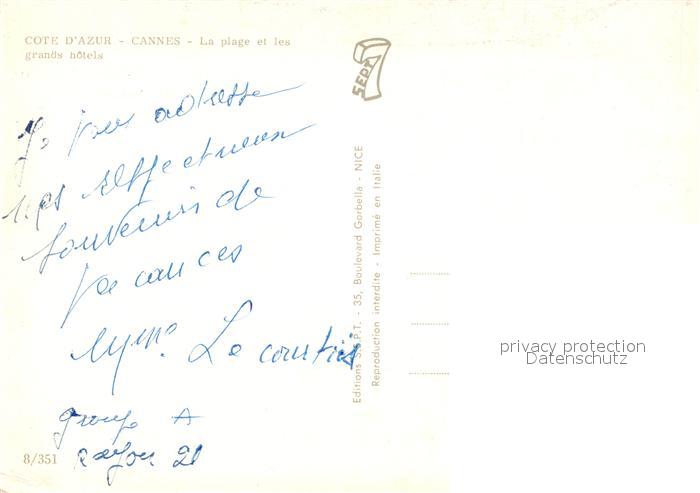 COTE D'AZUR - CANNES - La plage et les
grands hôtels
SEPT
Je vous adresse
mes respectueux
souvenirs de
vacances
Mme Le
groupe A
rayon 21
8/351
Editions S.E.P.T. - 35, Boulevard Gorbella - NICE
Reproduction interdite - Imprimé en Italie
privacy protection
Datenschutz